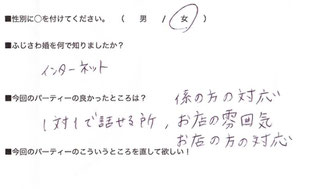 ■性別に○を付けてください。 ( 男 / 女 )
■ふじさわ婚を何で知りましたか？
インターネット
■今回のパーティーの良かったところは？
係の方の対応
1対1で話せる所, お店の雰囲気
お店の方の対応
■今回のパーティーのこういうところを直して欲しい！